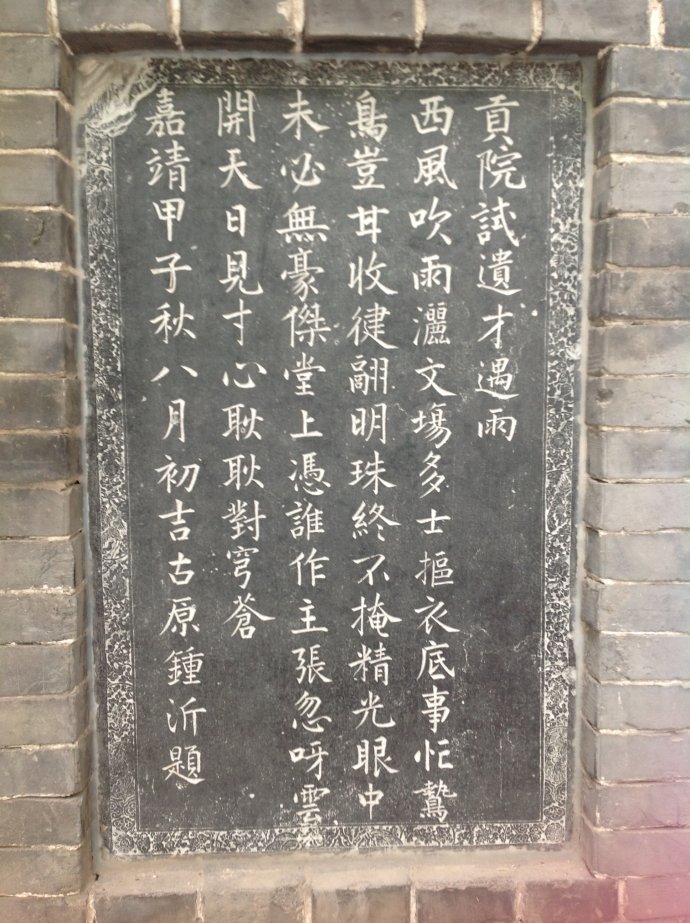 貢院試遺才遇雨
西風吹雨灑文場多士摳衣底事忙鷙
鳥豈甘收健翮明珠終不掩精光眼中
未必無豪傑堂上憑誰作主張忽呀雲
開天日見寸心耿耿對穹蒼
嘉靖甲子秋八月初吉古原鍾沂題